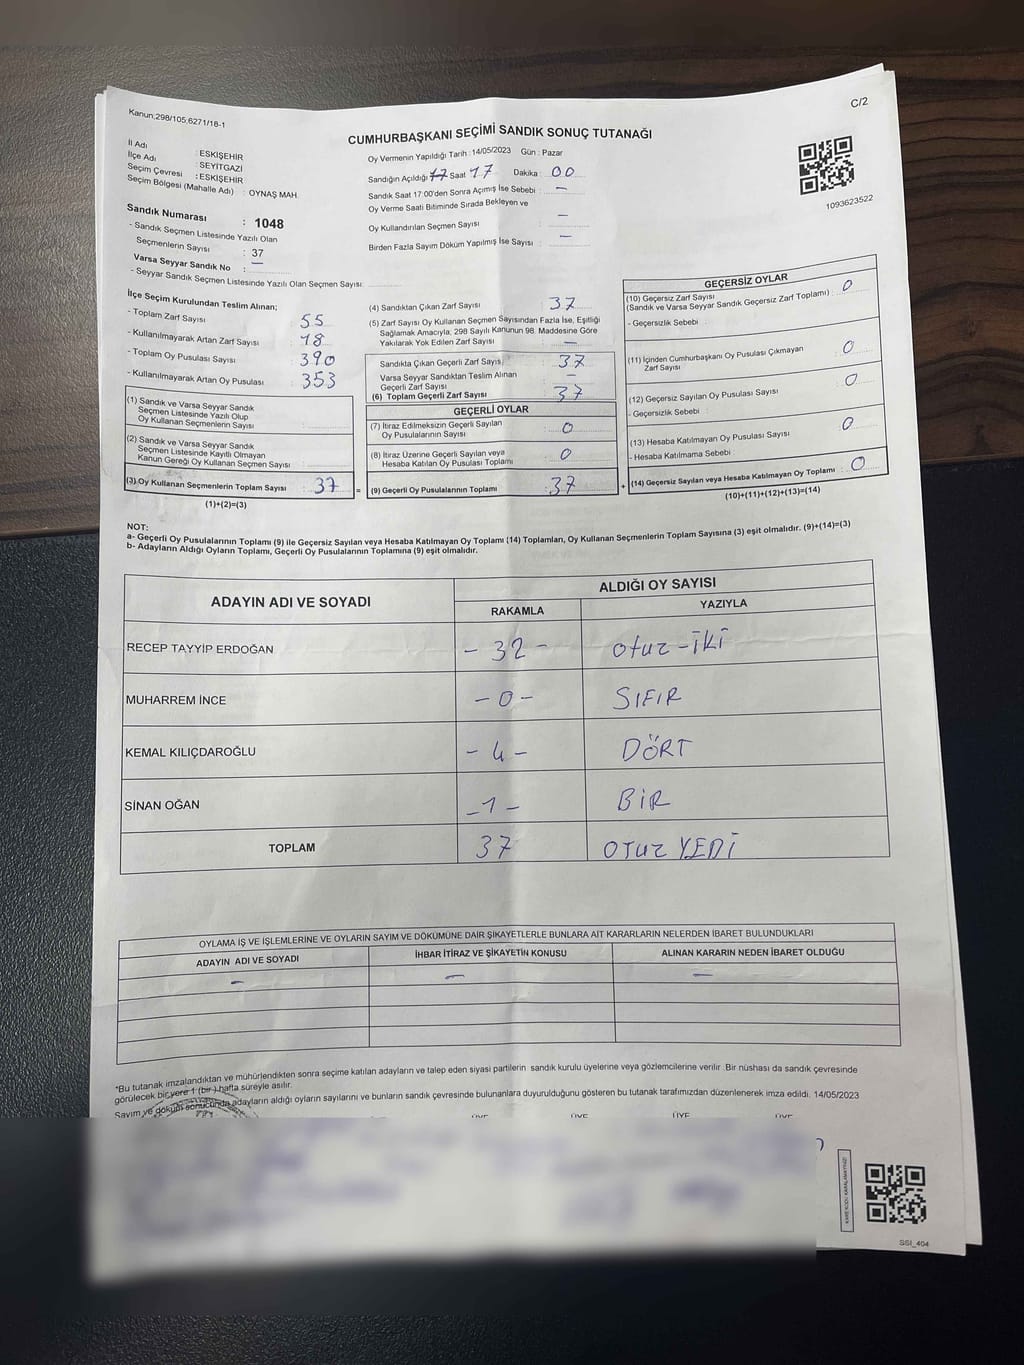 Kanun;298/105,6271/18-1
C/2
CUMHURBAŞKANI SEÇİMİ SANDIK SONUÇ TUTANAĞI
İl Adı : ESKİŞEHİR
İlçe Adı : SEYİTGAZİ
Seçim Çevresi : ESKİŞEHİR
Seçim Bölgesi (Mahalle Adı) : OYNAŞ MAH.
Sandık Numarası : 1048
- Sandık Seçmen Listesinde Yazılı Olan
Seçmenlerin Sayısı : 37
Varsa Seyyar Sandık No : —
- Seyyar Sandık Seçmen Listesinde Yazılı Olan Seçmen Sayısı:
Oy Vermenin Yapıldığı Tarih : 14/05/2023 Gün : Pazar
Sandığın Açıldığı 17 Saat 17 Dakika : 00
Sandık Saat 17:00'den Sonra Açmış İse Sebebi : —
Oy Verme Saati Bitiminde Sırada Bekleyen ve
Oy Kullandırılan Seçmen Sayısı : —
Birden Fazla Sayım Döküm Yapılmış İse Sayısı : —
1093623522
İlçe Seçim Kurulundan Teslim Alınan;
- Toplam Zarf Sayısı : 55
- Kullanılmayarak Artan Zarf Sayısı : 18
- Toplam Oy Pusulası Sayısı : 390
- Kullanılmayarak Artan Oy Pusulası : 353
(1) Sandık ve Varsa Seyyar Sandık
Seçmen Listesinde Yazılı Olup
Oy Kullanan Seçmenlerin Sayısı :
(2) Sandık ve Varsa Seyyar Sandık
Seçmen Listesinde Kayıtlı Olmayan
Kanun Gereği Oy Kullanan Seçmen Sayısı :
(3) Oy Kullanan Seçmenlerin Toplam Sayısı : 37 =
(1)+(2)=(3)
(4) Sandıktan Çıkan Zarf Sayısı : 37
(5) Zarf Sayısı Oy Kullanan Seçmen Sayısından Fazla İse, Eşitliği
Sağlamak Amacıyla; 298 Sayılı Kanunun 98. Maddesine Göre
Yakılarak Yok Edilen Zarf Sayısı : —
Sandıkta Çıkan Geçerli Zarf Sayısı : 37
Varsa Seyyar Sandıktan Teslim Alınan
Geçerli Zarf Sayısı : —
(6) Toplam Geçerli Zarf Sayısı : 37
GEÇERLİ OYLAR
(7) İtiraz Edilmeksizin Geçerli Sayılan
Oy Pusulalarının Sayısı : 0
(8) İtiraz Üzerine Geçerli Sayılan veya
Hesaba Katılan Oy Pusulası Toplamı : 0
(9) Geçerli Oy Pusulalarının Toplamı : 37 +
GEÇERSİZ OYLAR
(10) Geçersiz Zarf Sayısı
(Sandık ve Varsa Seyyar Sandık Geçersiz Zarf Toplamı) : 0
- Geçersizlik Sebebi :
(11) İçinden Cumhurbaşkanı Oy Pusulası Çıkmayan
Zarf Sayısı : 0
(12) Geçersiz Sayılan Oy Pusulası Sayısı : 0
- Geçersizlik Sebebi :
(13) Hesaba Katılmayan Oy Pusulası Sayısı : 0
- Hesaba Katılmama Sebebi :
(14) Geçersiz Sayılan veya Hesaba Katılmayan Oy Toplamı : 0
(10)+(11)+(12)+(13)=(14)
NOT:
a- Geçerli Oy Pusulalarının Toplamı (9) ile Geçersiz Sayılan veya Hesaba Katılmayan Oy Toplamı (14) Toplamları, Oy Kullanan Seçmenlerin Toplam Sayısına (3) eşit olmalıdır. (9)+(14)=(3)
b- Adayların Aldığı Oyların Toplamı, Geçerli Oy Pusulalarının Toplamına (9) eşit olmalıdır.
ADAYIN ADI VE SOYADI
ALDIĞI OY SAYISI
RAKAMLA YAZIYLA
RECEP TAYYİP ERDOĞAN - 32 - otuz-iki
MUHARREM İNCE - 0 - SIFIR
KEMAL KILIÇDAROĞLU - 4 - DÖRT
SİNAN OĞAN - 1 - BİR
TOPLAM 37 OTUZ YEDİ
OYLAMA İŞ VE İŞLEMLERİNE VE OYLARIN SAYIM VE DÖKÜMÜNE DAİR ŞİKAYETLERLE BUNLARA AİT KARARLARIN NELERDEN İBARET BULUNDUKLARI
ADAYIN ADI VE SOYADI İHBAR İTİRAZ VE ŞİKAYETİN KONUSU ALINAN KARARIN NEDEN İBARET OLDUĞU
— — —
*Bu tutanak imzalandıktan ve mühürlendikten sonra seçime katılan adayların ve talep eden siyasi partilerin sandık kurulu üyelerine veya gözlemcilerine verilir. Bir nüshası da sandık çevresinde
görülecek bir yere 1 (bir ) hafta süreyle asılır.
Sayım ve döküm sonucunda adayların aldığı oyların sayılarını ve bunların sandık çevresinde bulunanlara duyurulduğunu gösteren bu tutanak tarafımızdan düzenlenerek imza edildi. 14/05/2023
ÜYE ÜYE ÜYE ÜYE
KARE KODU KARALAMAYINIZ!
SSI_404